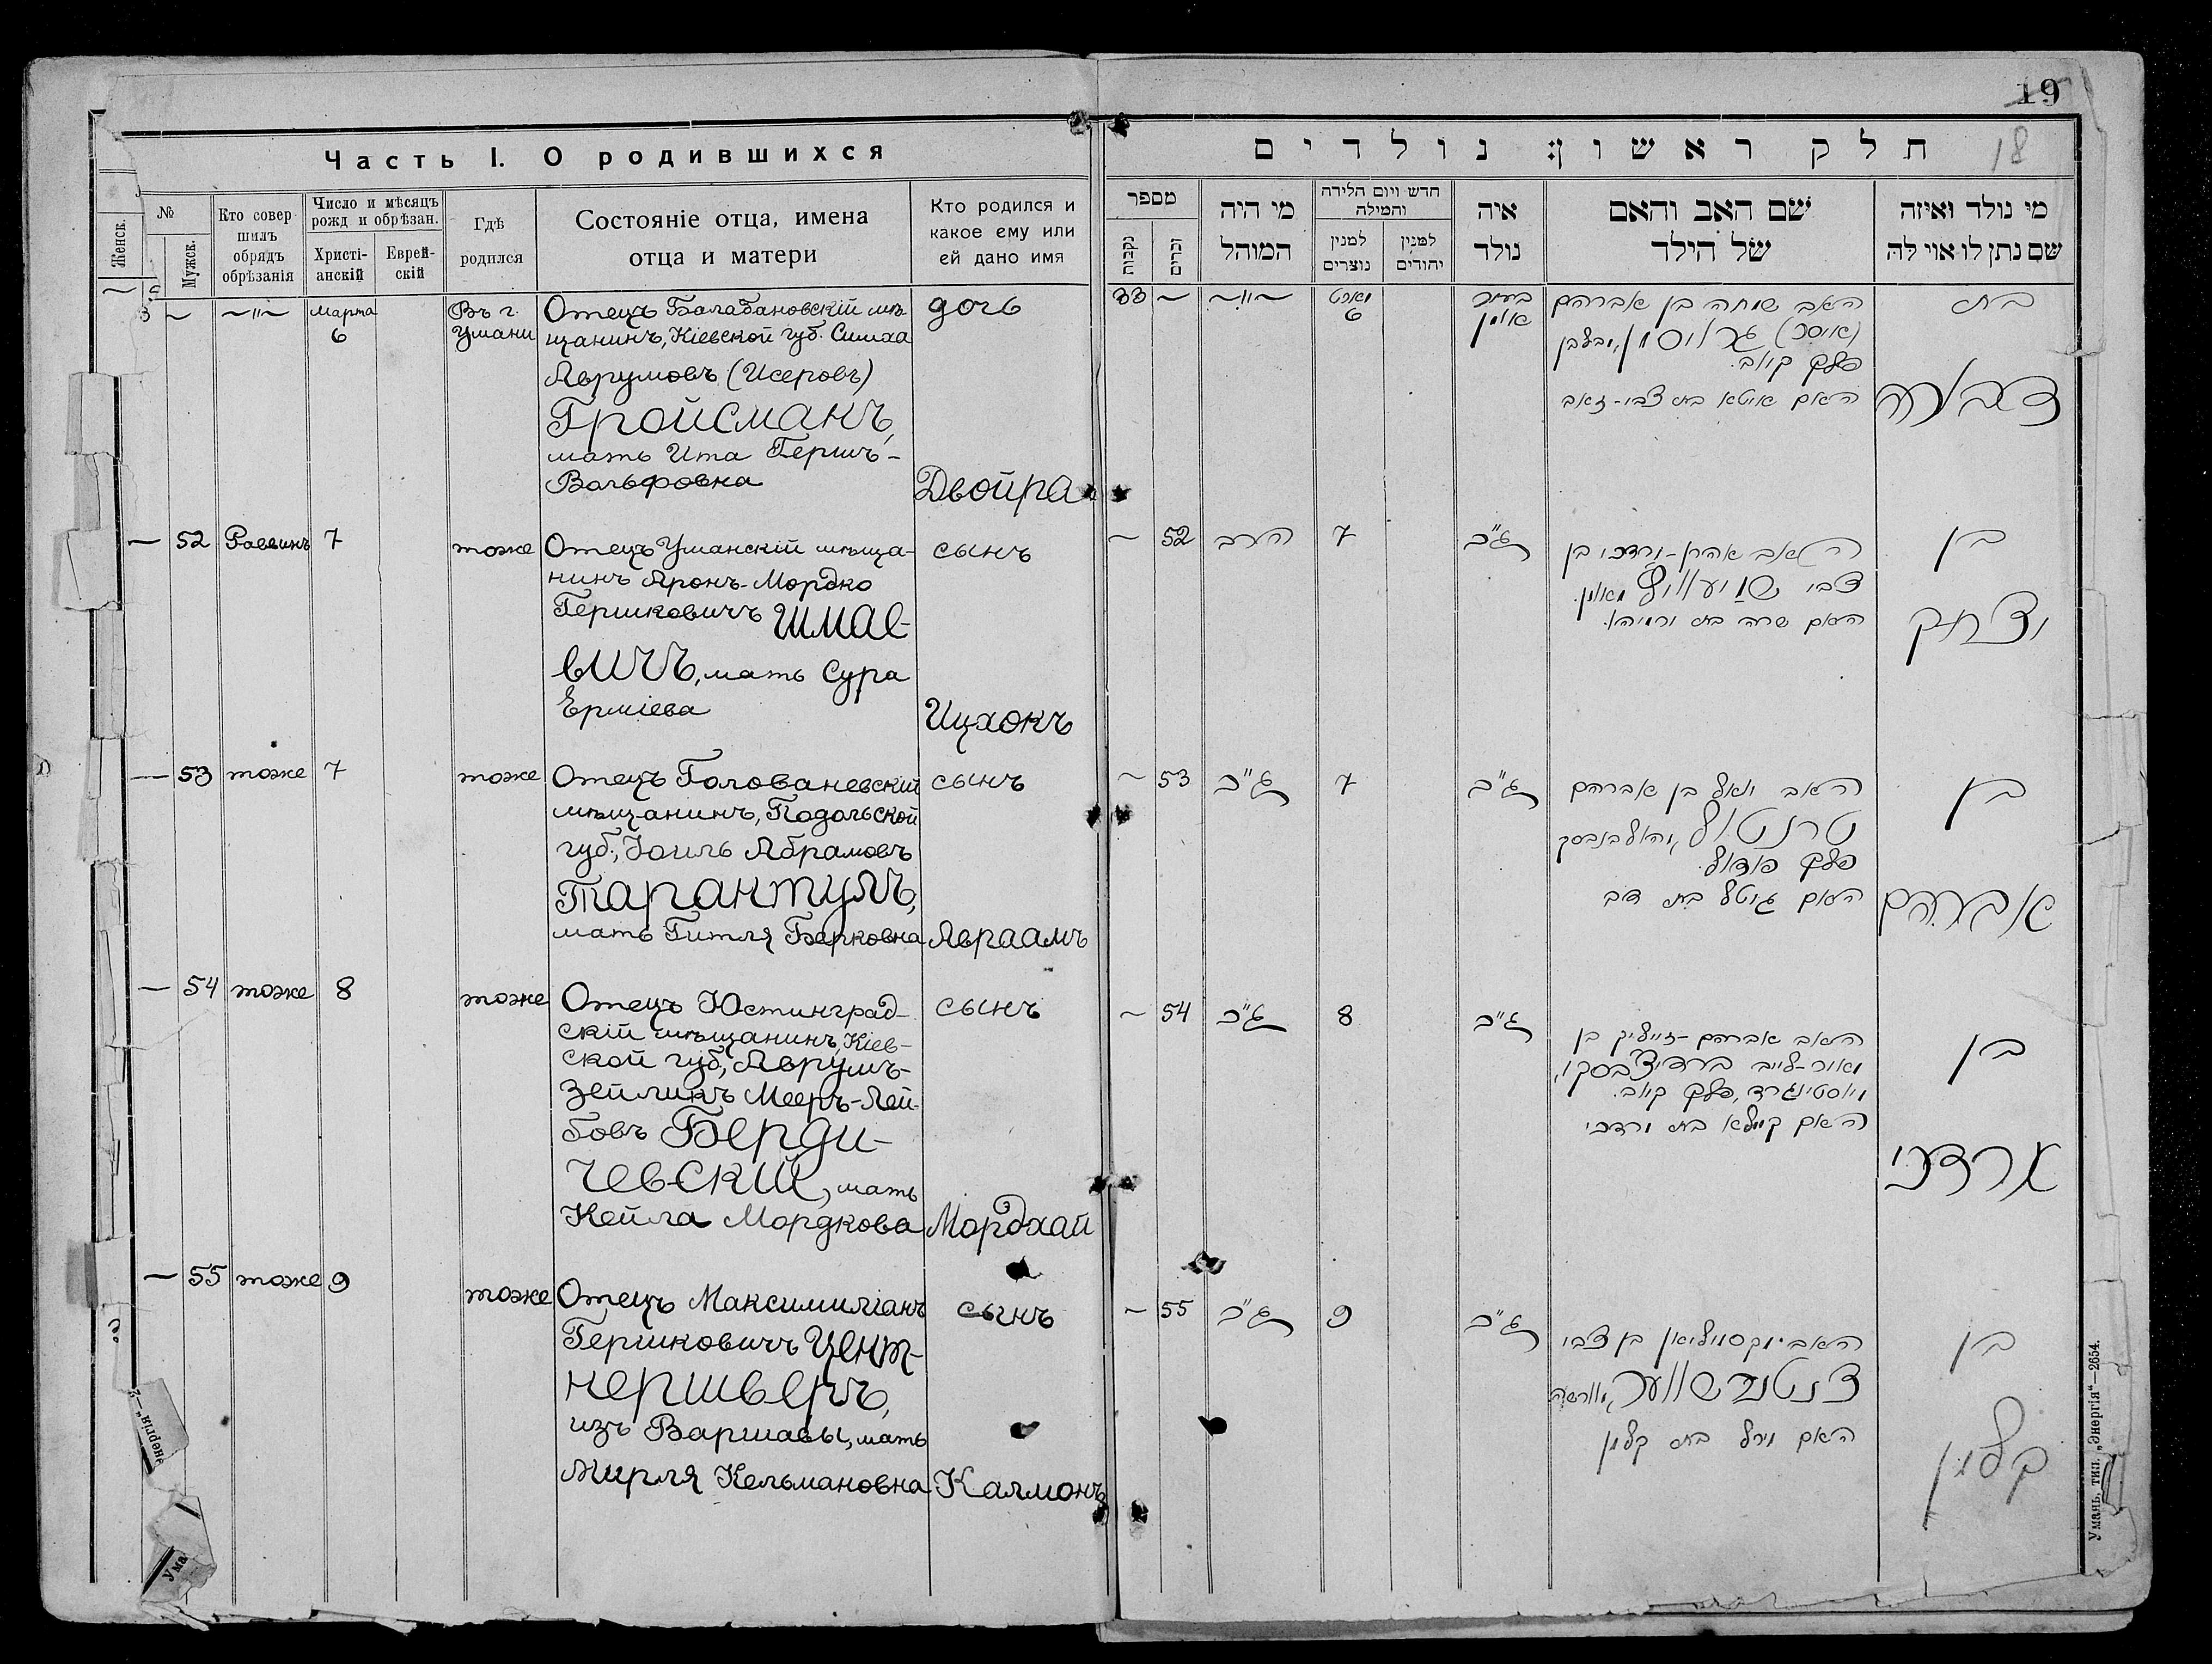 19
18
Часть I. О родившихся
Женск.
№
Мужск.
Кто совер
шилъ
обрядъ
обрѣзанія
Число и мѣсяцъ
рожд и обрѣзан.
Христі-
анскій
Еврей-
скій
Гдѣ
родился
Состояніе отца, имена
отца и матери
Кто родился и
какое ему или
ей дано имя
Марта
6
Въ г.
Умани
Отецъ Балабановскій мѣ-
щанинъ, Кіевской губ. Симха
Аврумовъ (Исеровъ)
Гройсманъ,
мать Ита Гершъ-
Вольфовна
дочь
Двойра
— 52 Раввинъ 7 тоже
Отецъ Уманскій мѣща-
нинъ Аронъ-Мордко
Гершковичъ Шмае-
вичъ, мать Сура
Ерміева
сынъ
Ицхокъ
— 53 тоже 7 тоже
Отецъ Голованевскій
мѣщанинъ, Подольской
губ., Іоиль Абрамовъ
Тарантулъ,
мать Гитля Берковна
сынъ
Авраамъ
— 54 тоже 8 тоже
Отецъ Юстинград-
скій мѣщанинъ, Кіев-
ской губ., Аврумъ-
Зейликъ Мееръ-Лей-
бовъ Берди-
чевскій, мать
Кейла Мордкова
сынъ
Мордхай
— 55 тоже 9 тоже
Отецъ Максимиліанъ
Гершковичъ Цент-
нершверъ,
изъ Варшавы, мать
Мирля Кельмановна
сынъ
Калмонъ
חלק ראשון: נולדים
מספר
נקבות
זכרים
מי היה
המוהל
חדש ויום הלידה
והמילה
למנין
נוצרים
למנין
יהודים
איה
נולד
שם האב והאם
של הילד
מי נולד ואיזה
שם נתן לו אוי לה
33 —
מארט
6
בעיר
אומן
האב שמחה בן אברהם
(איסר) גרויסמן,
פלך קיוב.
האם איטא בת צבי-זאב
בת
דבורה
— 52 הרב 7 ג"כ
האב אהרן-מרדכי בן
צבי שמיעוויץ מאומן.
האם שרה בת ירמיהו.
בן
יצחק
— 53 ג"כ 7 ג"כ
האב יואל בן אברהם
טרנטול,
פלך פודול.
האם גיטל בת דוב
בן
אברהם
— 54 ג"כ 8 ג"כ
האב אברהם-זייליק בן
מאיר-לייב ברדיצבסקי,
מיוסטינגרד, פלך קיוב.
האם קיילא בת מרדכי
בן
מרדכי
— 55 ג"כ 9 ג"כ
האב מקסמיליאן בן צבי
צנטנרשווער, מוורשה
האם מירל בת קלמן
בן
קלמן
Умань, тип. „Энергія“—2654.
нергія“—2
Ума